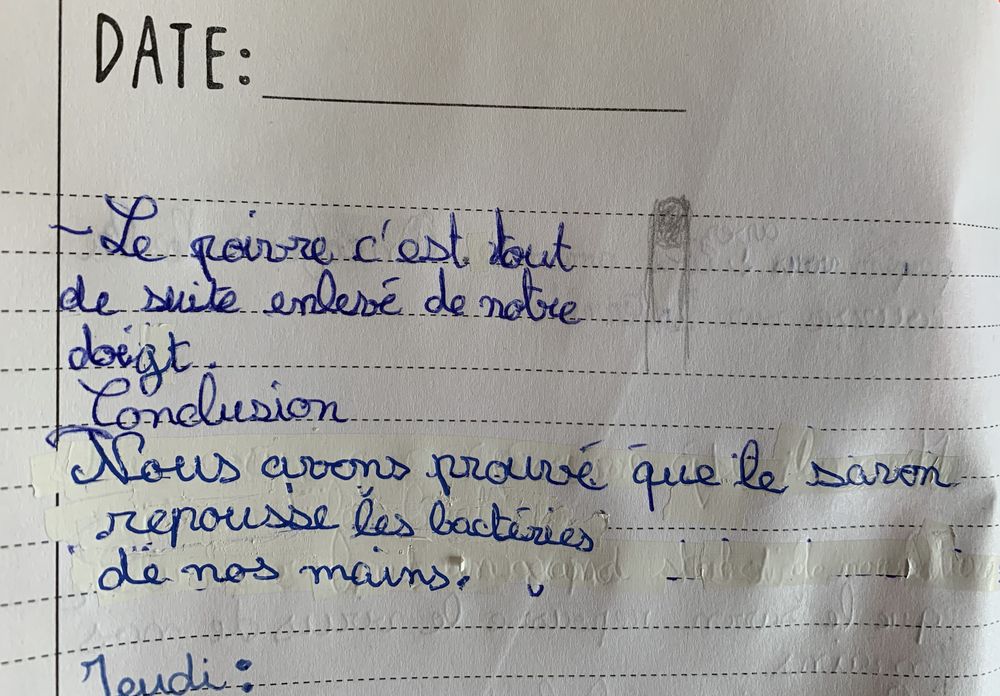 DATE:
- Le poivre c'est tout
de suite enlevé de notre
doigt.
Conclusion
Nous avons prouvé que le savon
repousse les bactéries
de nos mains.
Jeudi: